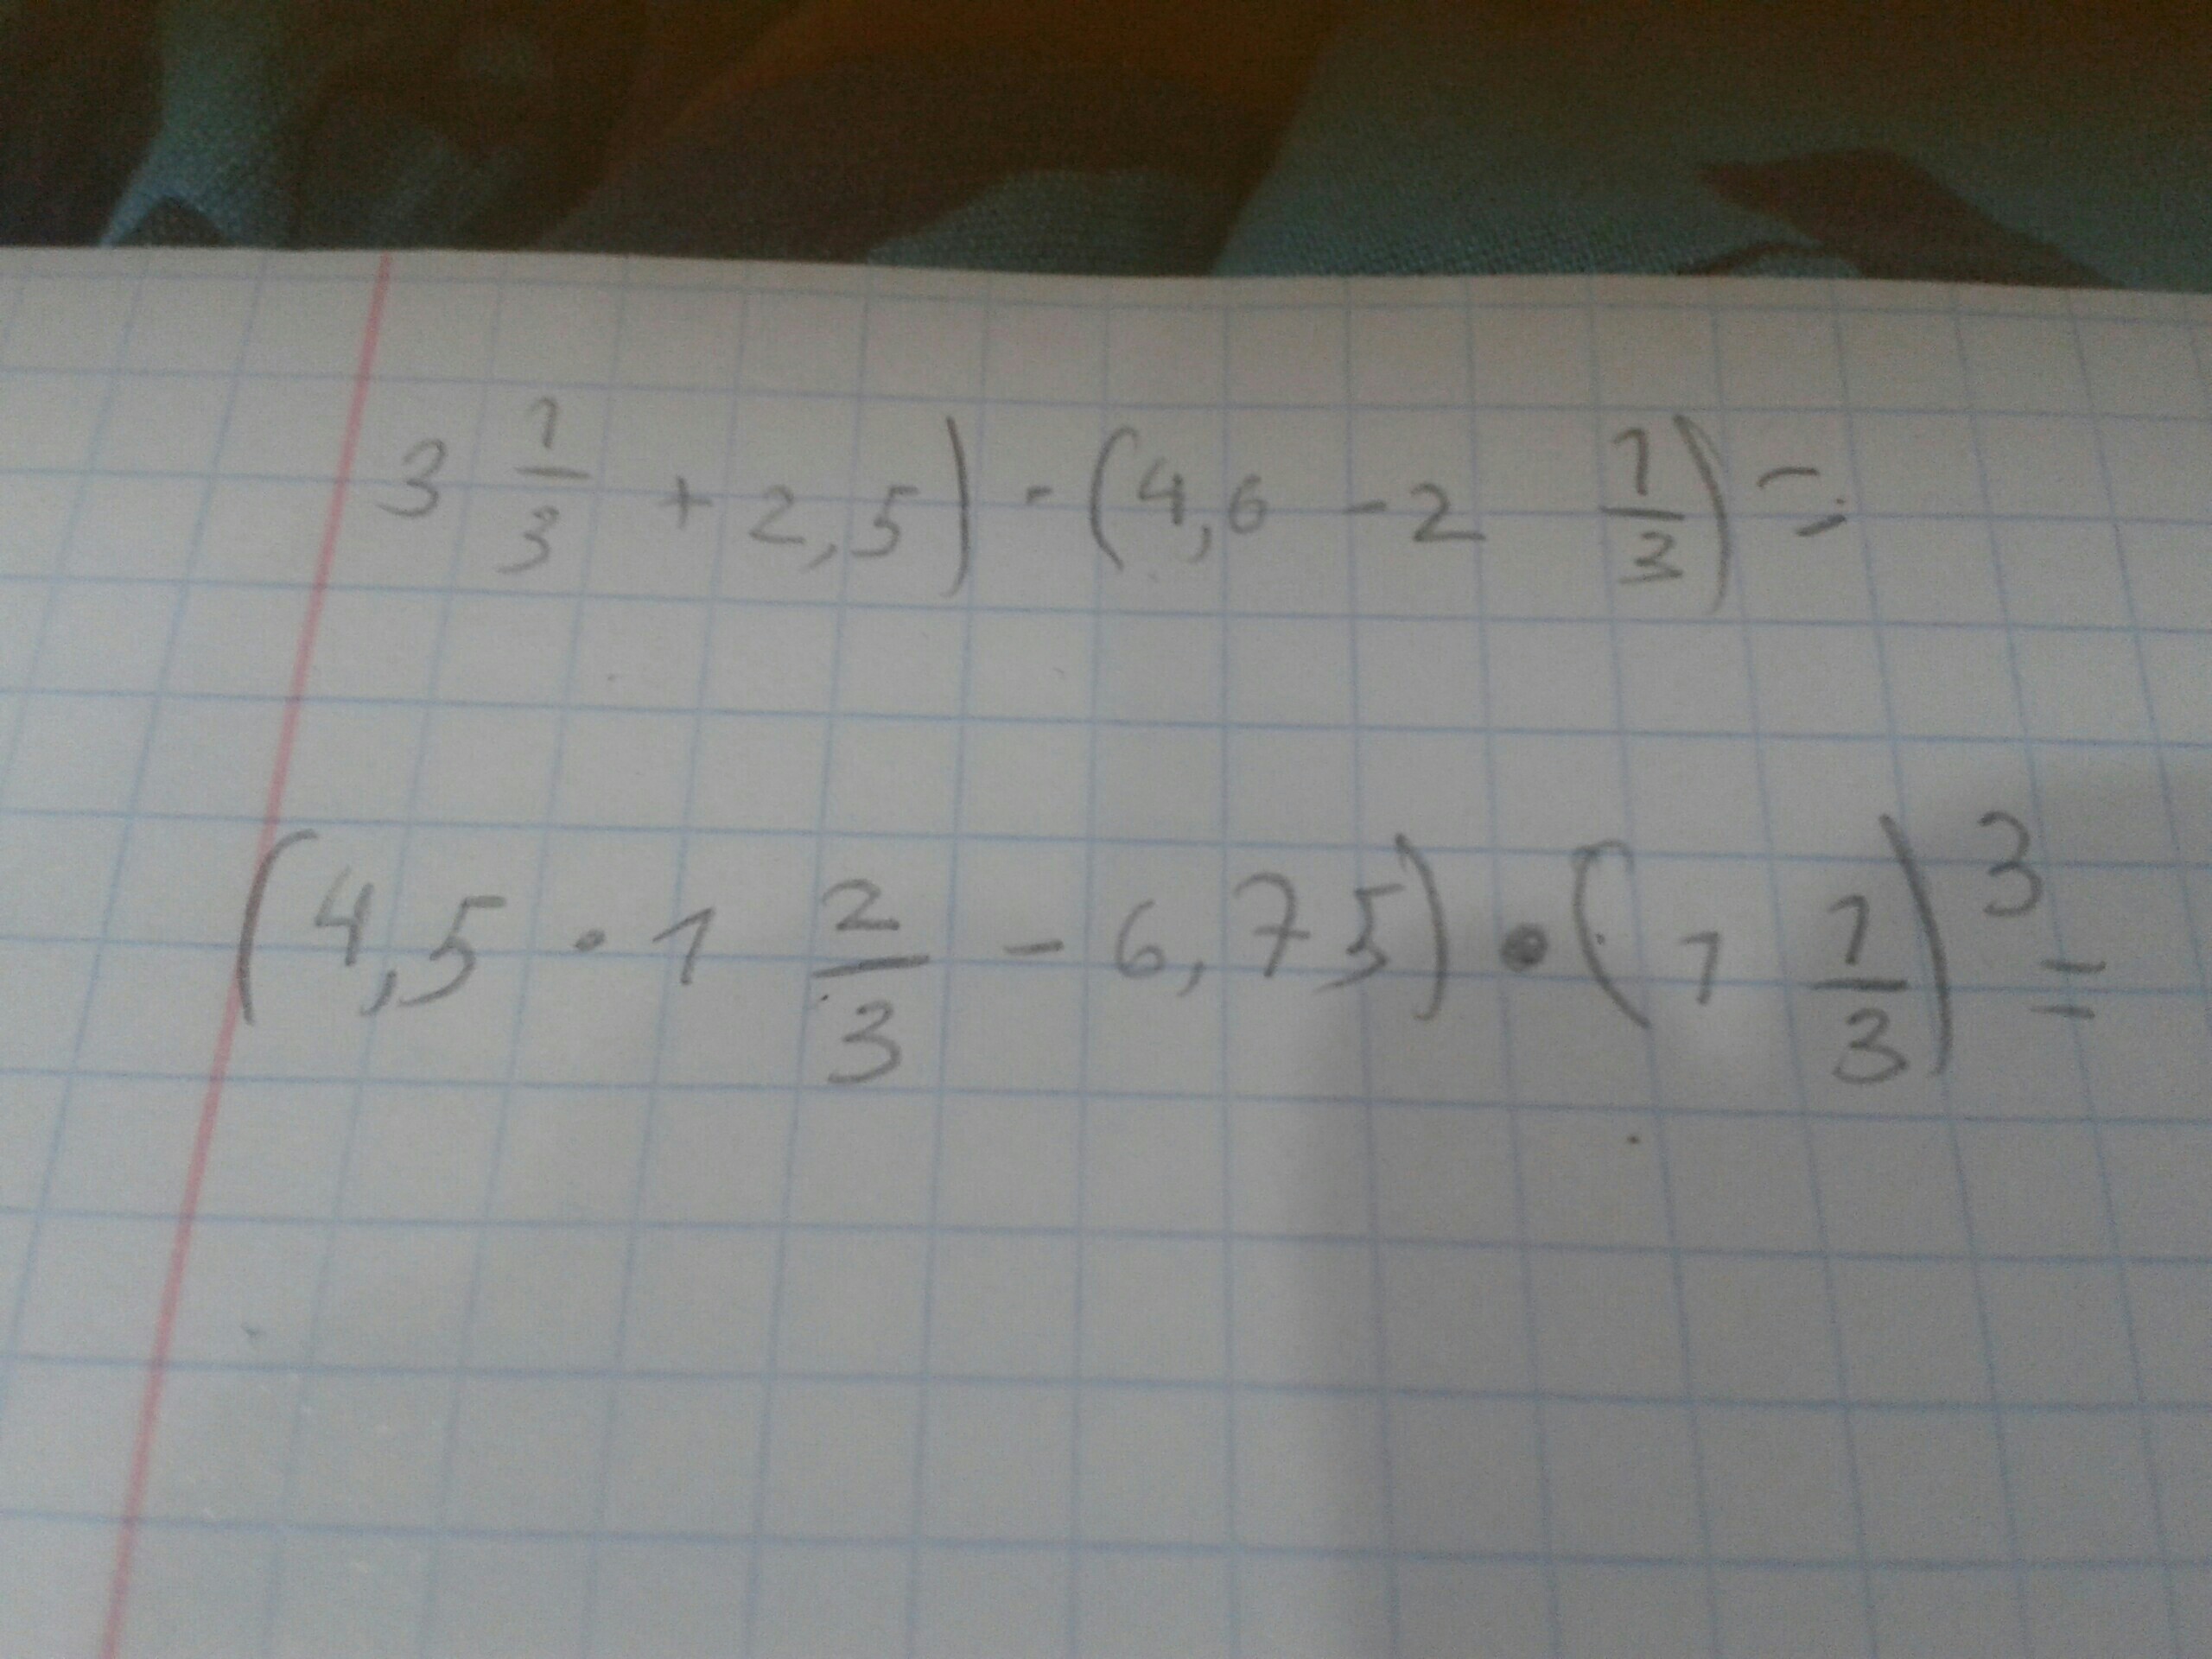 3 1/3 + 2,5) · (4,6 - 2 1/3) =
(4,5 · 1 2/3 - 6,75) · (1 1/3)³ =